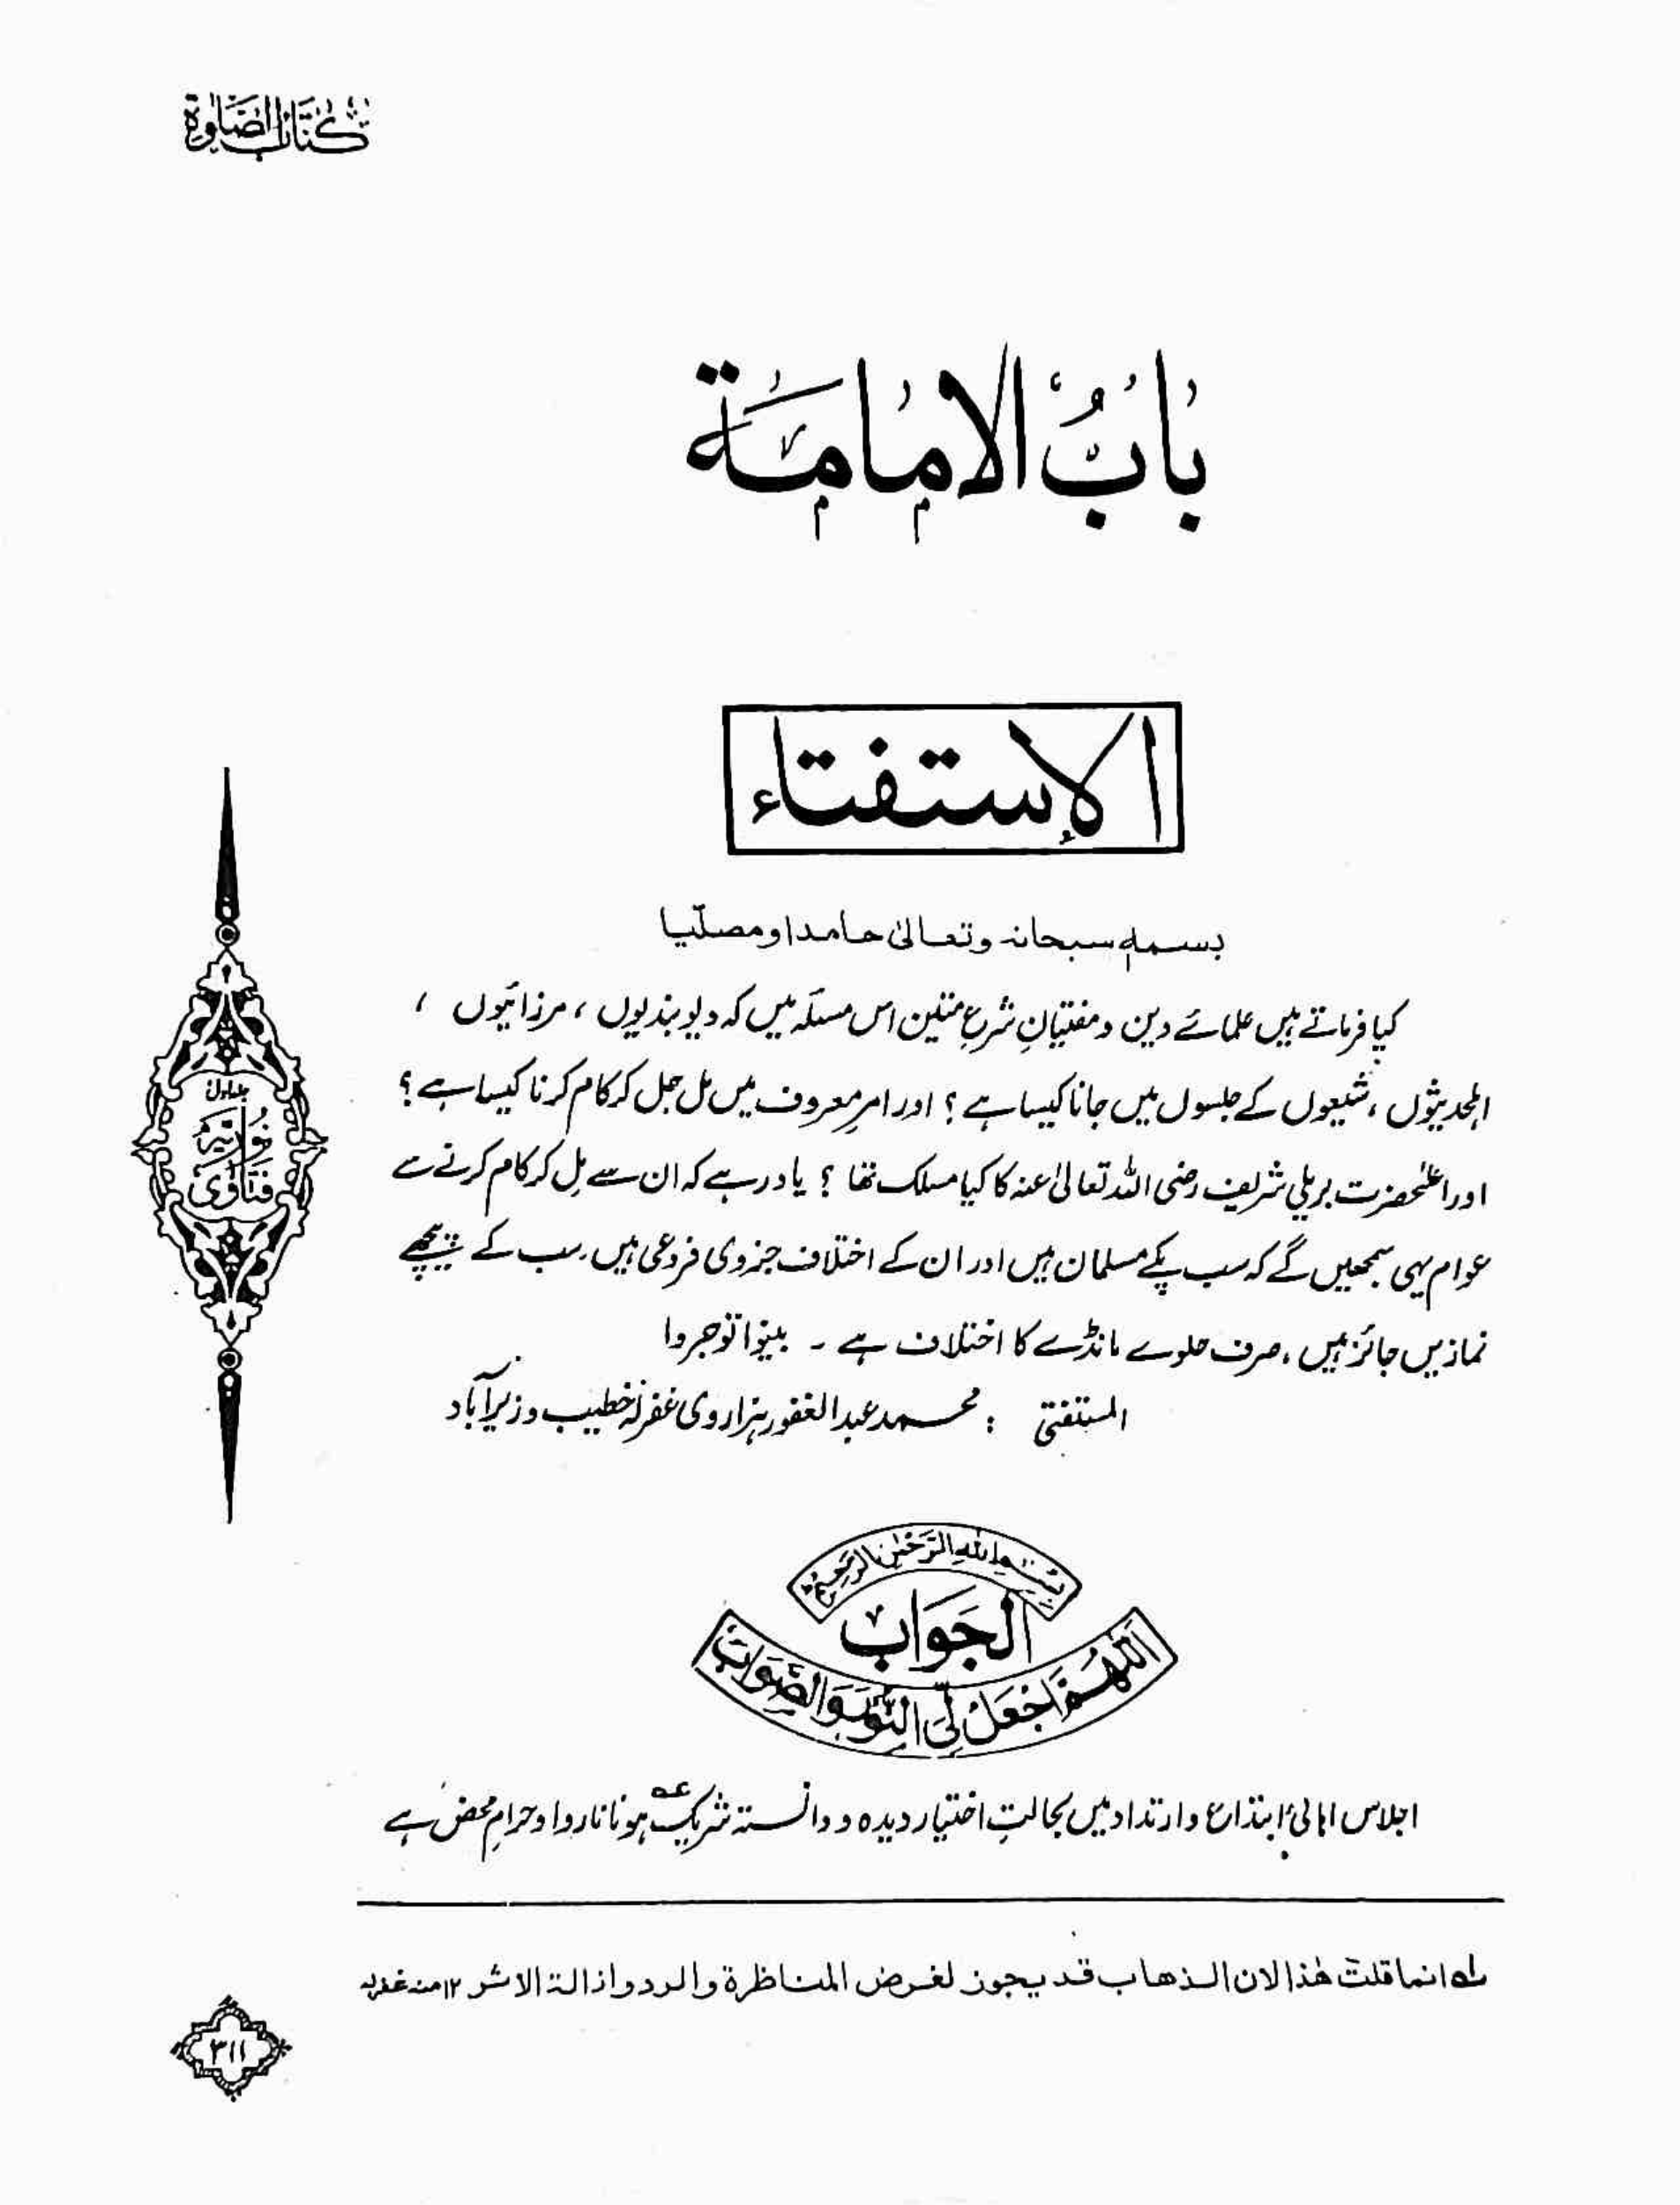 كتاب الصلوة
بَابُ الاِمَامَة
الإستفتاء
بسمہ سبحانہ وتعالیٰ حامدا ومصلّیا
کیا فرماتے ہیں علمائے دین و مفتیانِ شرعِ متین اس مسئلہ میں کہ دیوبندیوں ، مرزائیوں ،
اہلحدیثوں ، شیعوں کے جلسوں میں جانا کیسا ہے ؟ اور امرِ معروف میں مل جل کر کام کرنا کیسا ہے ؟
اور اعلٰحضرت بریلی شریف رضی اللہ تعالیٰ عنہ کا کیا مسلک تھا ؟ یاد رہے کہ ان سے مِل کر کام کرنے سے
عوام یہی سمجھیں گے کہ سب پکے مسلمان ہیں اور ان کے اختلاف جزوی فروعی ہیں ، سب کے پیچھے
نمازیں جائز ہیں ، صرف حلوے مانڈے کا اختلاف ہے ۔ بینوا توجروا
المستفتی : محمد عبدالغفور ہزاروی غفرلہ خطیب وزیرآباد
جلد اول
فتاوٰی نوریہ
بِسْمِ اللهِ الرَّحْمٰنِ الرَّحِيْمِ
الجَوَاب
اَللّٰهُمَّ اجْعَلْ لِّیَ النُّوْرَ وَالصَّوَابَ
اجلاس اہالئ ابتداع و ارتداد میں بحالتِ اختیار دیدہ و دانستہ شریک عہ ہونا ناروا و حرامِ محض ہے
انما قلت هٰذا لان الذهاب قد يجوز لغرض المناظرة والرد وازالة الاشر ۱۲ منہ غفرلہ
۳۱۱